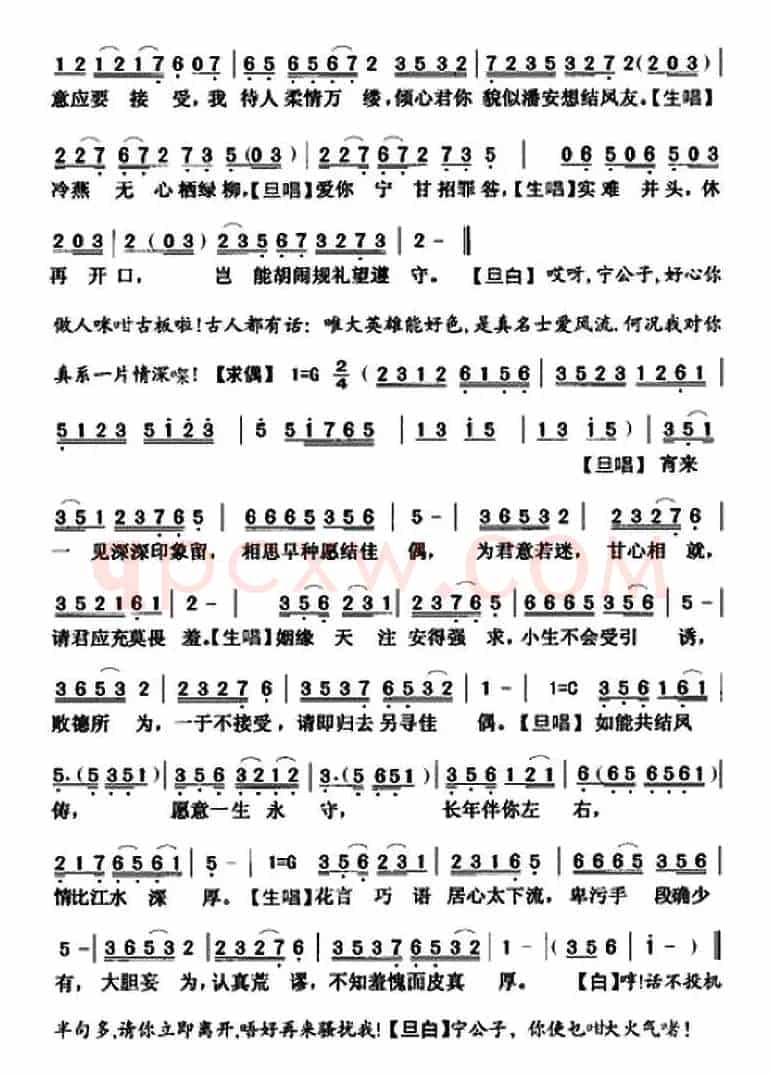 1 2 1 2 1 7 6 0 7 | 6 5 6 5 6 5 7 2 3 5 3 2 | 7 2 3 5 3 2 7 2 ( 2 0 3 ) |
意应要 接 受，我 待人柔情万 缕，倾心君你 貌似潘安想结凤友。【生唱】
2 2 7 6 7 2 7 3 5 ( 0 3 ) | 2 2 7 6 7 2 7 3 5 | 0 6 5 0 6 5 0 3
冷燕 无 心栖绿柳，【旦唱】爱你 宁 甘招罪咎，【生唱】实难 并头，休
2 0 3 | 2 ( 0 3 ) 2 3 5 6 7 3 2 7 3 | 2 - ‖
再 开口， 岂 能胡闹规礼望遵 守。 【旦白】哎呀，宁公子，好心你
做人咪咁古板啦！古人都有话：唯大英雄能好色，是真名士爱风流，何况我对你
真系一片情深㗎！【求偶】 1=G 2/4 ( 2 3 1 2 6 1 5 6 | 3 5 2 3 1 2 6 1 |
5 1 2 3 5 i 2 3 | 5 5 i 7 6 5 | 1 3 i 5 | 1 3 i 5 ) | 3 5 1
【旦唱】宵来
3 5 1 2 3 7 6 5 | 6 6 6 5 3 5 6 | 5 - | 3 6 5 3 2 | 2 3 2 7 6 |
一 见深深印象留， 相思早种愿结佳 偶， 为君意若迷， 甘心相 就，
qpcxw.com
3 5 2 1 6 1 | 2 - | 3 5 6 2 3 1 | 2 3 7 6 5 | 6 6 6 5 3 5 6 | 5 - |
请君应充莫畏 羞。【生唱】姻缘 天 注 安得强 求，小生不会受引 诱，
3 6 5 3 2 | 2 3 2 7 6 | 3 5 3 7 6 5 3 2 | 1 - | 1=C 3 5 6 1 6 1 |
败德所 为，一于不接受，请即归去 另寻佳 偶。【旦唱】如能共结凤
5 · ( 5 3 5 1 ) | 3 5 6 3 2 1 2 | 3 · ( 5 6 5 1 ) | 3 5 6 1 2 1 | 6 ( 6 5 6 5 6 1 ) |
俦， 愿意一生 永 守， 长年伴你左 右，
2 1 7 6 5 6 1 | 5 - | 1=G 3 5 6 2 3 1 | 2 3 1 6 5 | 6 6 5 6 3 5 6 |
情比江水 深 厚。【生唱】花言 巧 语 居心太下流，卑污手 段确少
5 - | 3 6 5 3 2 | 2 3 2 7 6 | 3 5 3 7 6 5 3 2 | 1 - | ( 3 5 6 | i - )
有，大胆妄 为，认真荒 谬，不知羞愧面皮真 厚。 【白】哼！话不投机
半句多，请你立即离开，唔好再来骚扰我！【旦白】宁公子，你使乜咁大火气啫！